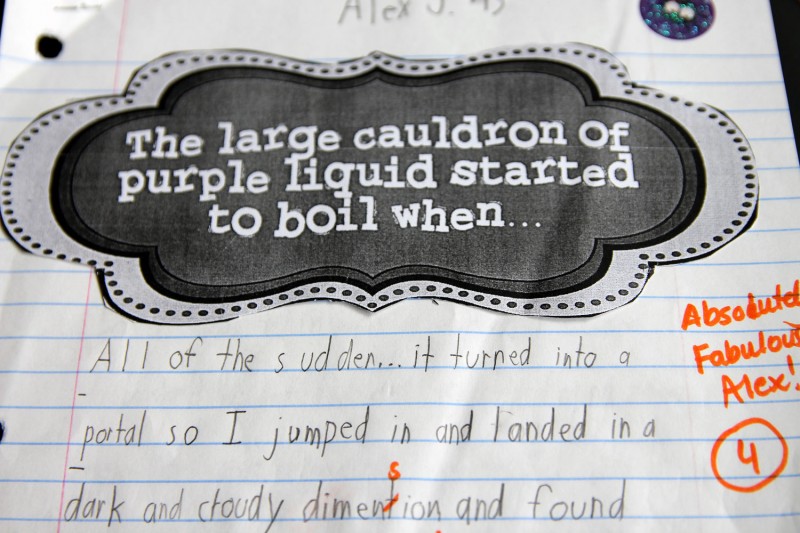 Alex J. 45
The large cauldron of
purple liquid started
to boil when...
Absolutel
Fabulous
Alex!
4
All of the sudden... it turned into a
portal so I jumped in and landed in a
s
dark and cloudy dimention and found